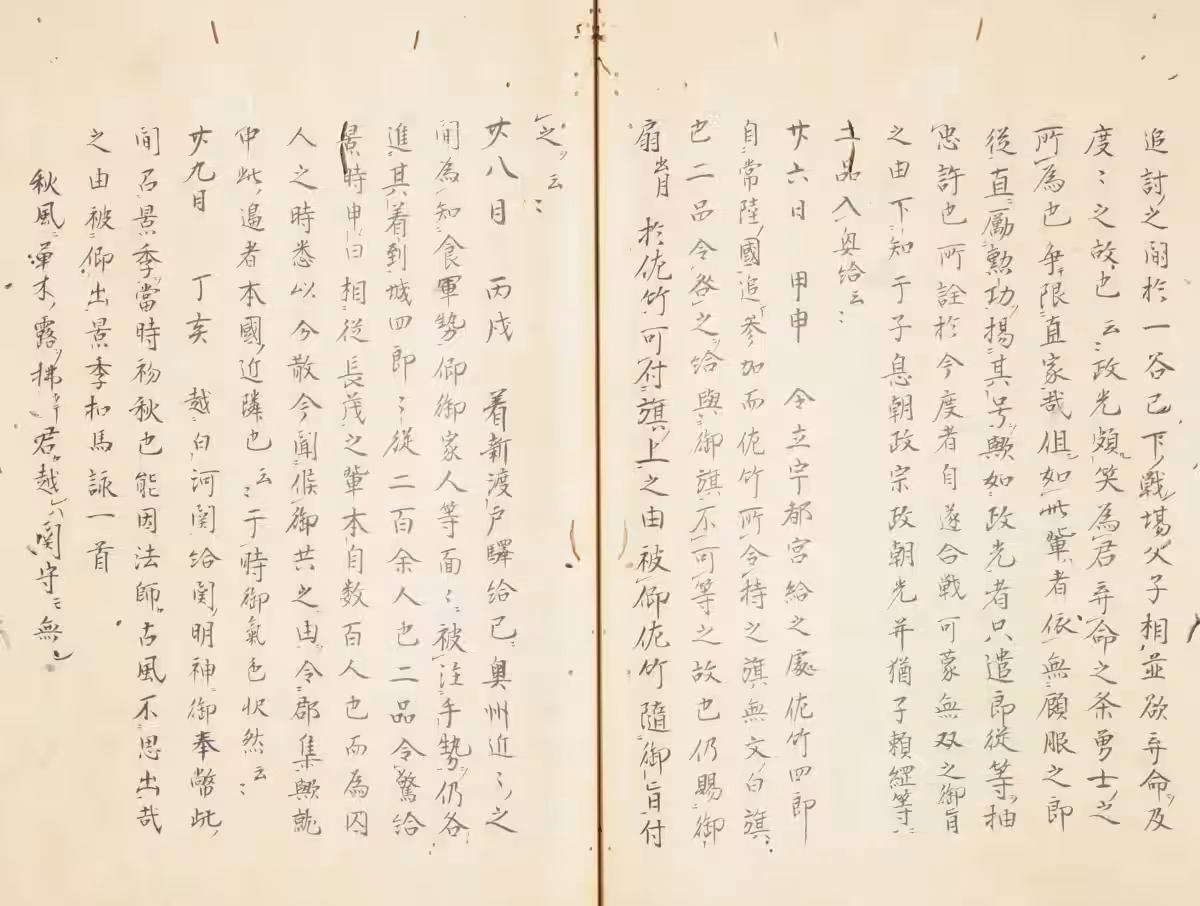 追討之間於一谷已下戦場父子相並欲弃命及
度〻之故也云〻政光頗笑為君弃命之条勇士之
所為也争限直家哉但如此輩者依無顧眼之郎
従直励勲功揚其号歟如政光者只遣郎従等抽
忠許也所詮於今度者自遂合戦可蒙無双之御旨
之由下知于子息朝政宗政朝光并猶子頼経等〻
二品入興給云〻
廿六日 甲申 令立宇都宮給之處佐竹四郎
自常陸國追参加而佐竹所令持之旗無文白旗
也二品令咎之給與御旗不可等之故也仍賜御
扇出月於佐竹可付旗上之由被仰佐竹随御旨付
之云〻
廿八日 丙戌 着新渡戸驛給已奥州近〻之
間為知食軍勢仰御家人等面〻被注手勢仍各
進其着到城四郎〻従二百余人也二品令驚給
景時申曰相従長茂之輩本自数百人也而為囚
人之時悉以分散今聞候御共之由令群集歟就
中此邉者本國近隣也云〻于時御氣色快然云〻
廿九日 丁亥 越白河関給関明神御奉幣此
間召景季當時初秋也能因法師古風不思出哉
之由被仰出景季扣馬詠一首
秋風草木露拂君越関守無